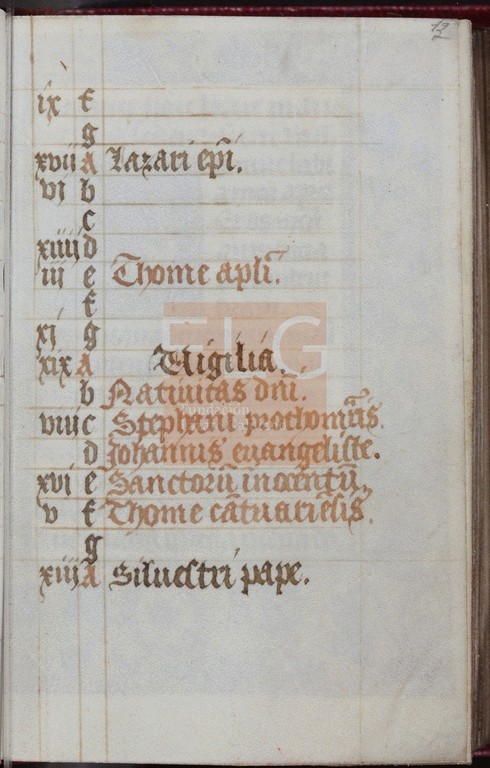 12
ix f
g
xvii A Lazari ep̄i.
vj b
c
xiiij d
iij e Thome apl̄i.
f
xj g
xix A Uigilia.
b Natiuitas dn̄i.
viii c Stephani prothomr̄is.
d Johannis euangeliste.
xvj e Sanctorū inocentū.
v f Thome cātuariēsis.
g
xiij A Siluestri pape.
FLG
Fundación